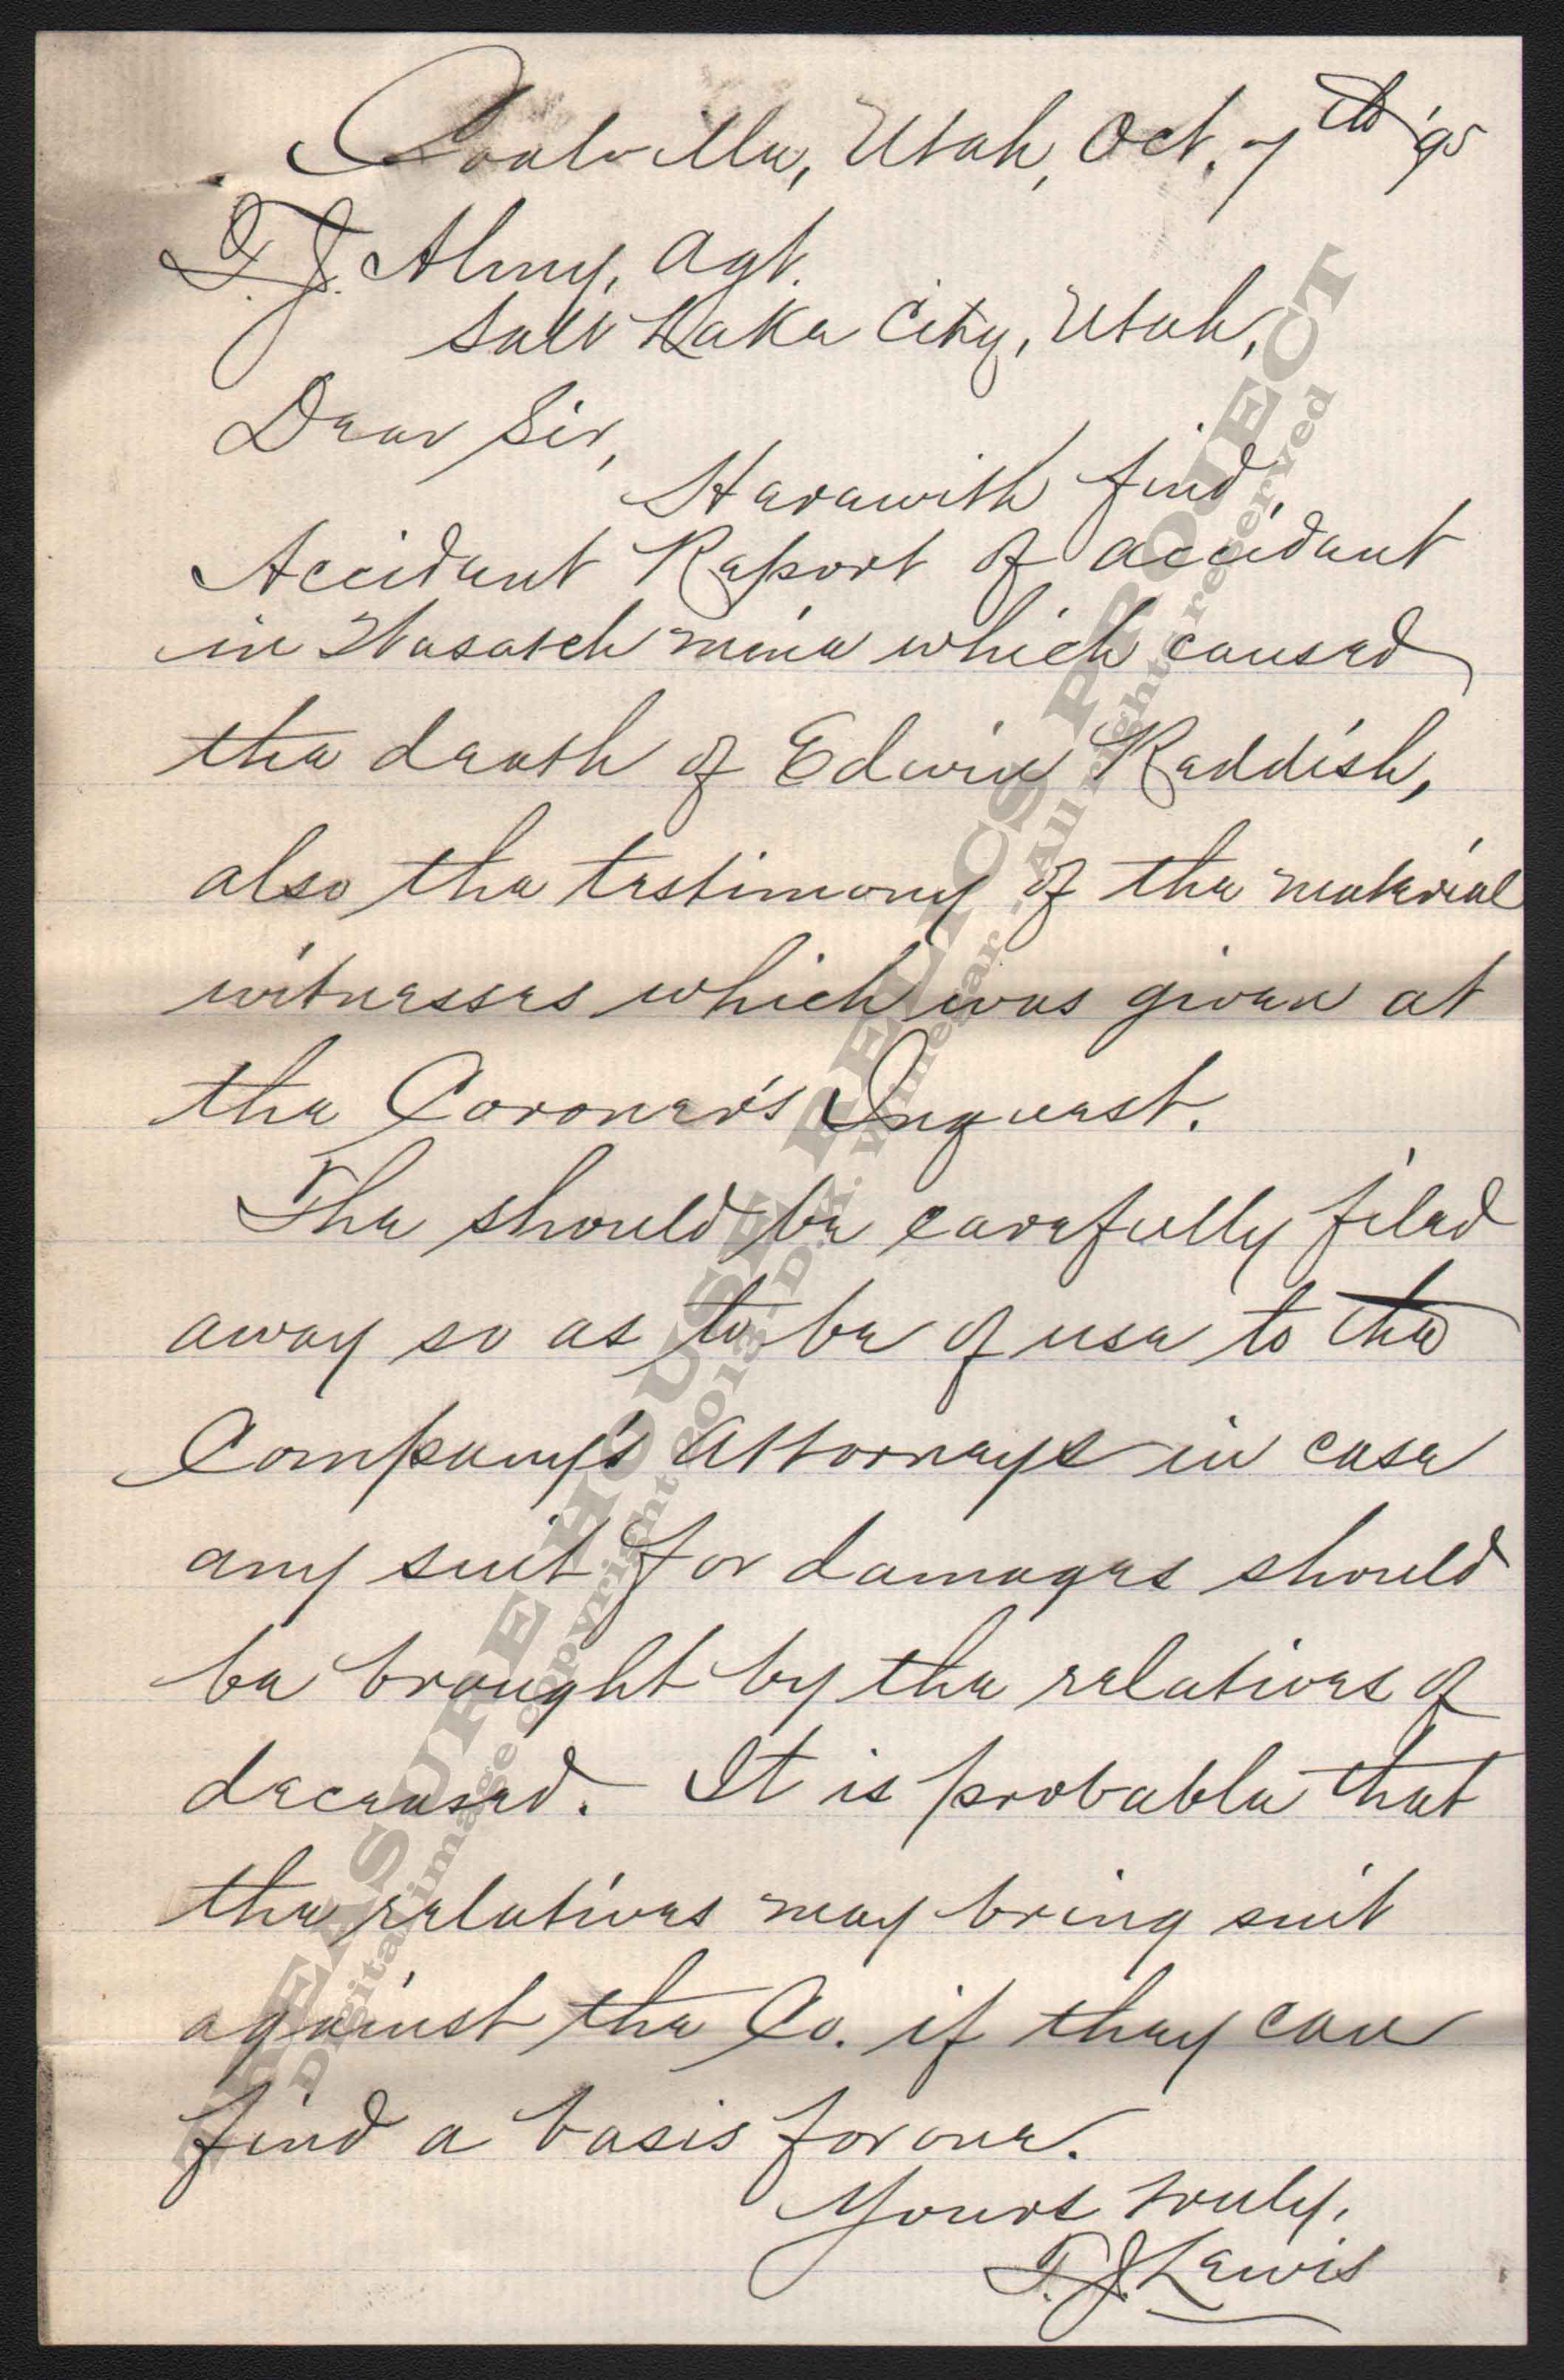 Coalville, Utah, Oct. 7th '95
T. J. Almy, Agt.
Salt Lake City, Utah,
Dear Sir,
Herewith find
Accident Report of accident
in Wasatch mine which caused
the death of Edwin Reddish,
also the testimony of the material
witnesses which was given at
the Coroner's Inquest.
The should be carefully filed
away so as to be of use to the
Company's Attorneys in case
any suit for damages should
be brought by the relatives of
deceased. It is probable that
the relatives may bring suit
against the Co. if they can
find a basis for one.
Yours truly,
T. J. Lewis
TREASURE HOUSE RELICS PROJECT
Digital image copyright 2013 - D.H. Winegar - All rights reserved